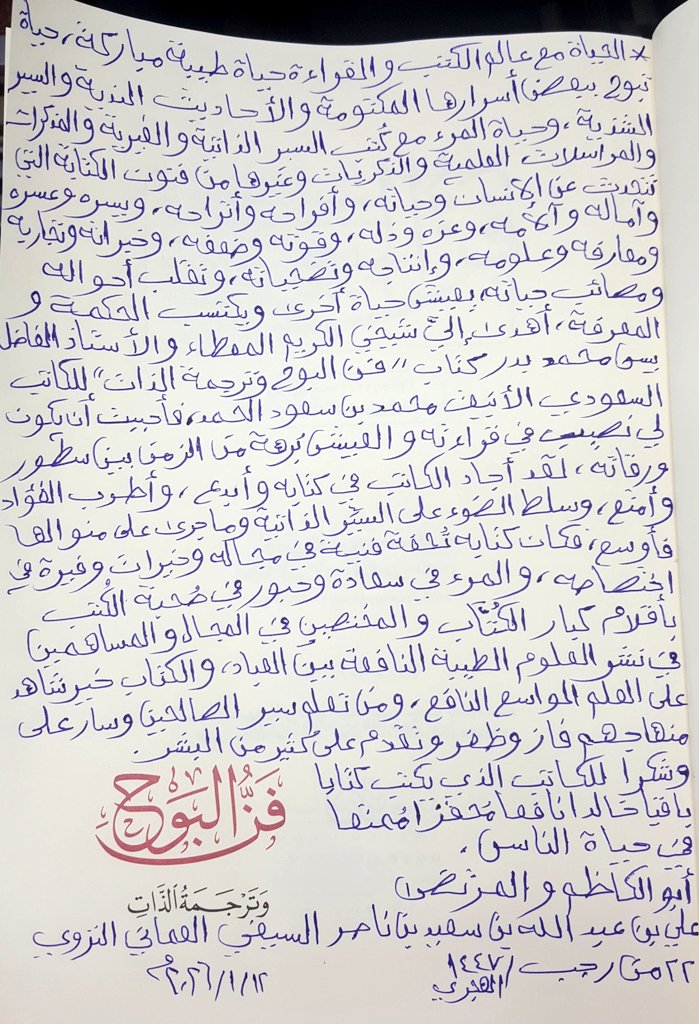 * الحياة مع عالم الكتب والقراءة حياة طيبة مباركة، حياة
تبوح ببعض أسرارها المكتومة والأحاديث الندية والسير
الشذية، وحياة المرء مع كُتب السير الذاتية والغيرية والمذكرات
والمراسلات العلمية والذكريات وغيرها من فنون الكتابة التي
تتحدث عن الإنسان وحياته، وأفراحه وأتراحه، ويسره وعسره
وآماله وآلامه، وعزه وذله، وقوته وضعفه، وخبراته وتجاربه
ومعارفه وعلومه، وإنتاجه وتضحياته، وتقلب أحواله
ومصائب حياته، يعيش حياة أخرى ويكتسب الحكمة و
المعرفة، أهدى إليَّ شيخي الكريم المعطاء والأستاذ الفاضل
يسن محمد بدر كتاب "فن البوح وترجمة الذات" للكاتب
السعودي الأنيق محمد بن سعود الحمد، فأحببت أن يكون
لي نصيب في قراءته والعيش بُرهة من الزمن بين سطور
ورقاته، لقد أجاد الكاتب في كتابه وأبدع، وأطرب الفؤاد
وأمتع، وسلط الضوء على السِّيَر الذاتية وما جرى على منوالها
فأوسع، فكان كتابه تُحفة فنية في مجاله وخبرات وفيرة في
اختصاصه، والمرء في سعادة وحبور في صُحبة الكُتب
بأقلام كبار الكُتَّاب والمختصين في المجال والمساهمين
في نشر العلوم الطيبة النافعة بين العباد، والكتاب خير شاهد
على العلم الواسع النافع، ومن تعلم سير الصالحين وسار على
منهاجهم فاز وظفر وتقدم على كثير من البشر.
وشكرا للكاتب الذي يكتب كتابا
باقيا خالدا نافعا مُحفزا مُمتعا
في حياة الناس.
فَنُّ البَوحِ
وَتَرجَمَةُ الذَّاتِ
أبو الكاظم والمرتضى
علي بن عبد الله بن سعيد بن ناصر السيفي العماني النزوي
٢٢ من رجب / ١٤٤٧ الهجري
٢٠٢٦/١/١٢م